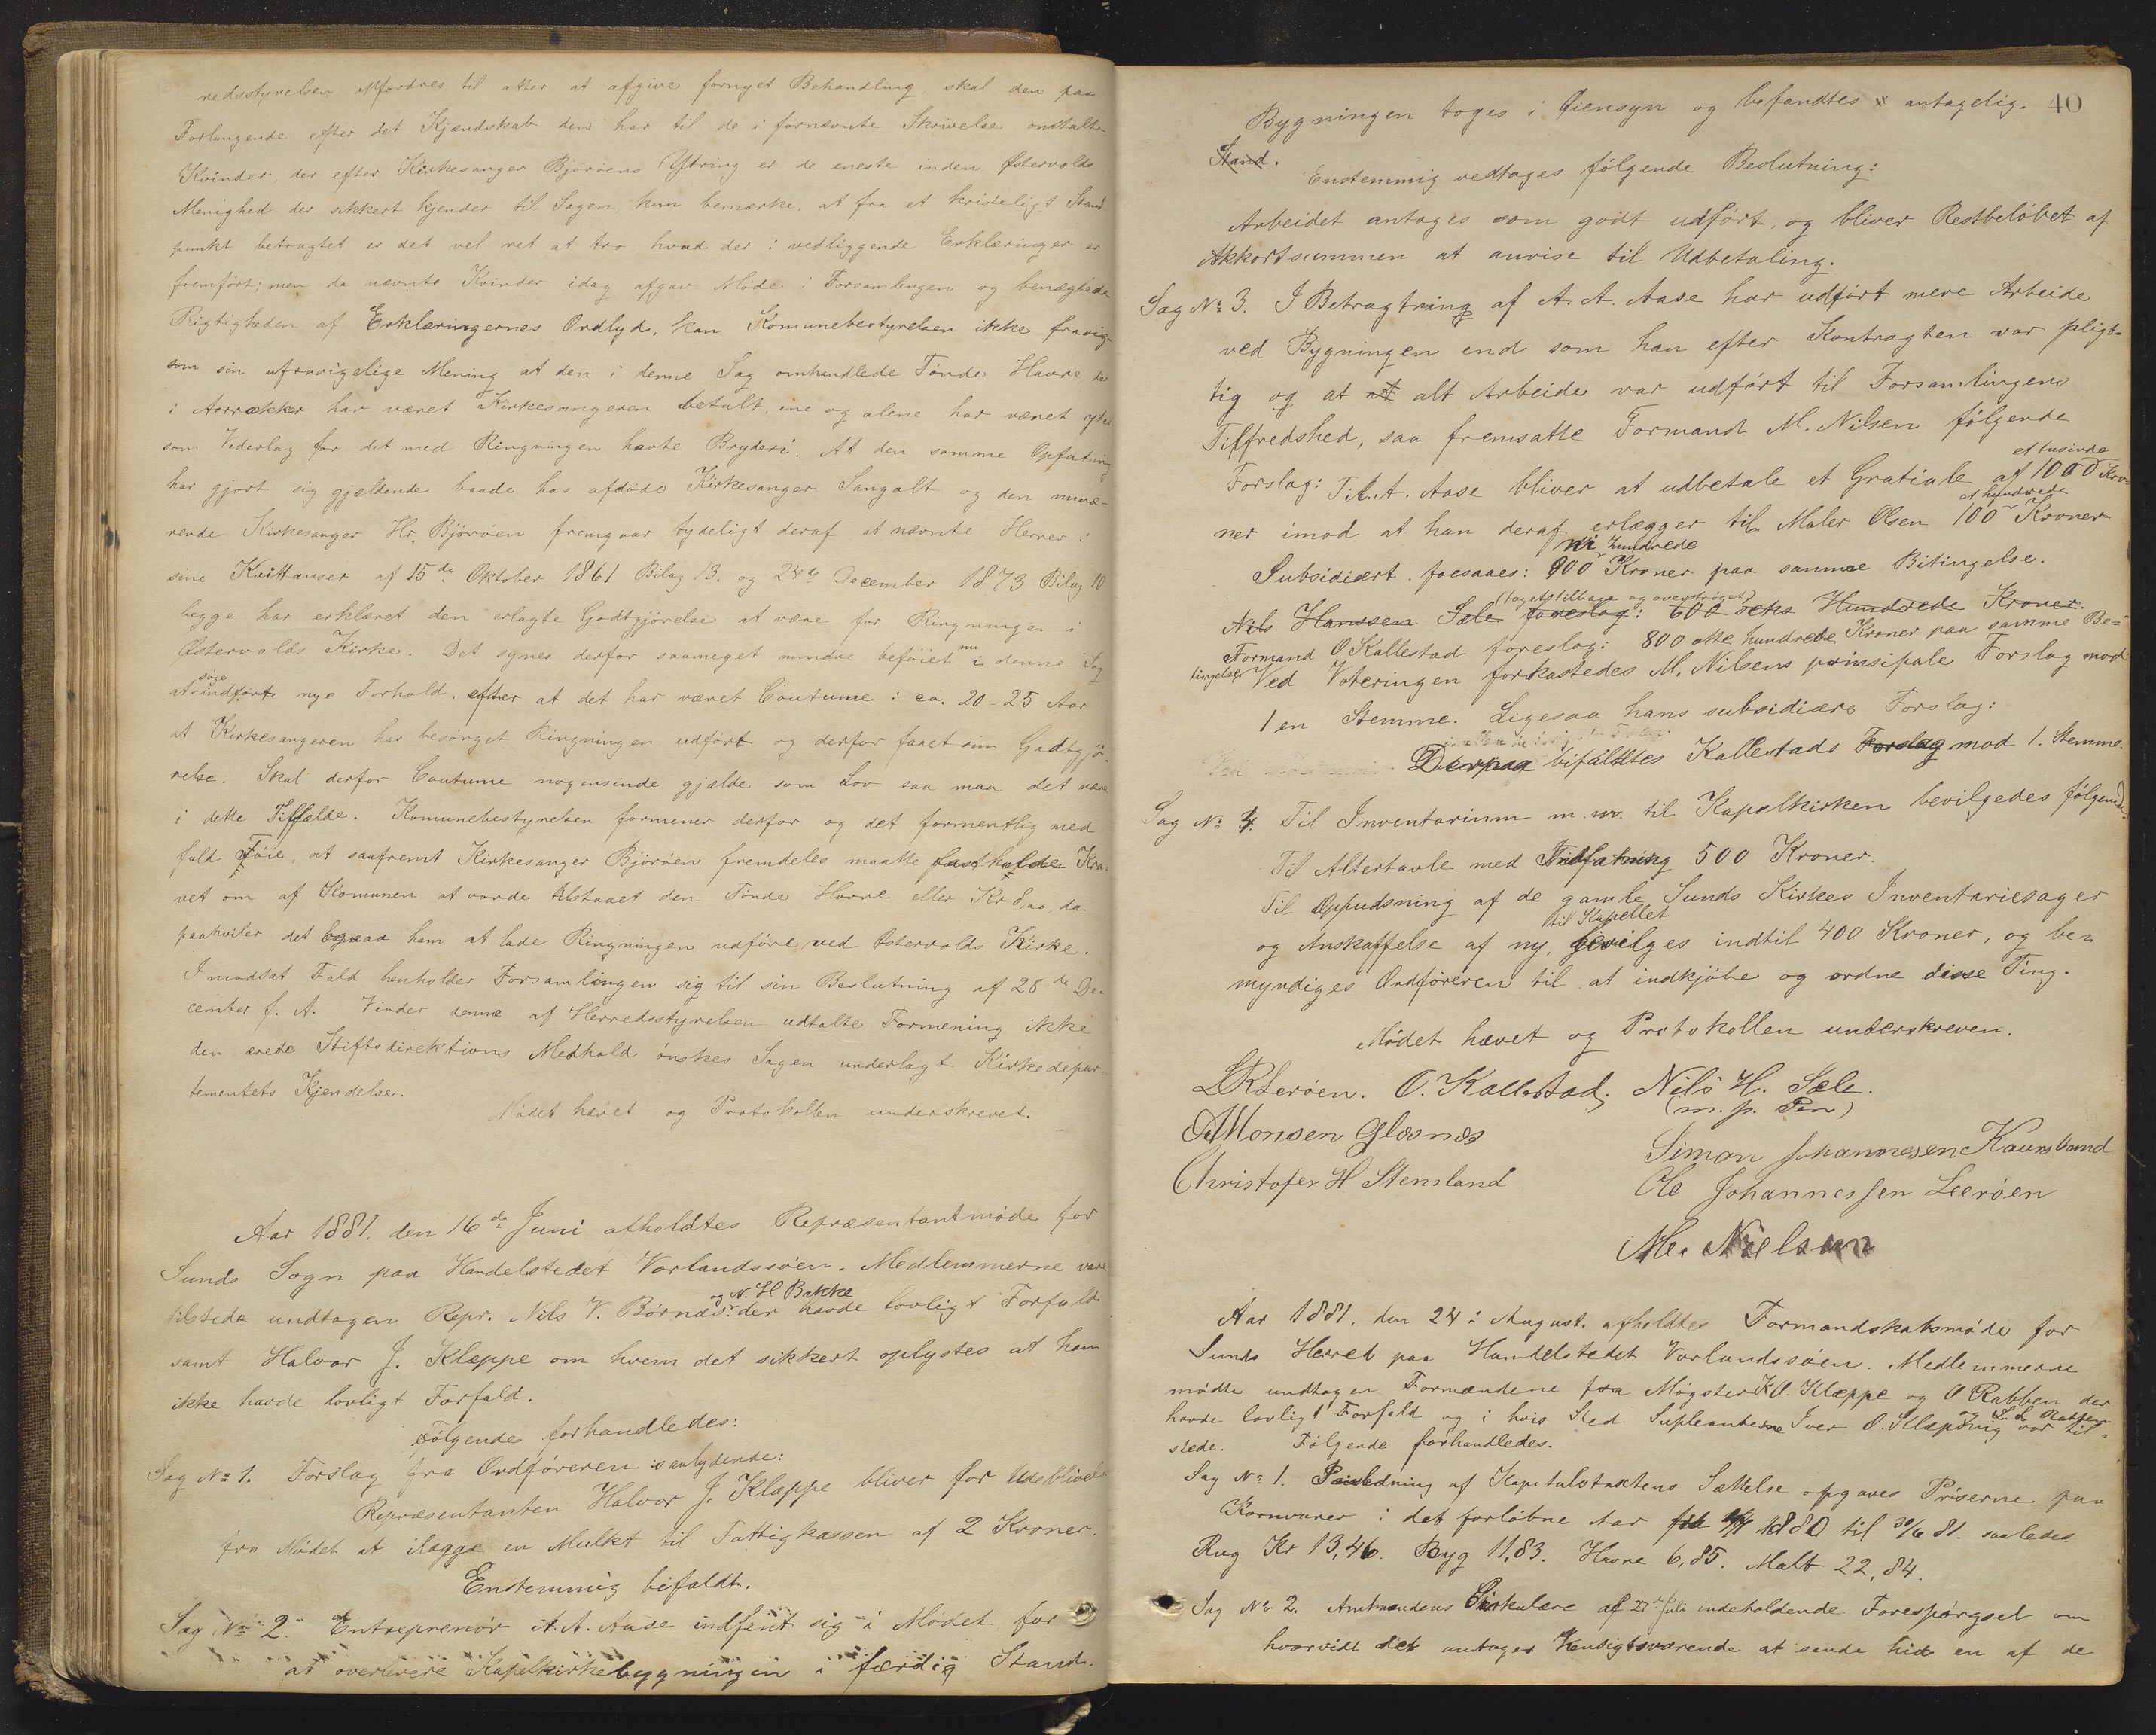 redsstyrelsen opfordres til atter at afgive fornyet Behandling skal den paa
Forlangende efter det Kjendskab den har til de i fornævnte Skrivelse omtalte
Kvinder, der efter Kirkesanger Björöens Ytring er de eneste inden Østervolds
Menighed der sikkert kjender til Sagen, kun bemærke, at fra et kristeligt Stand
punkt betragtet er det vel ret at tro hvad der i vedliggende Erklæringer er
fremført; men da nævnte Kvinder idag afgav Møde i Forsamlingen og benægtede
Rigtigheden af Erklæringernes Ordlyd, kan Komunebestyrelsen ikke fravige
som sin ufravigelige Mening at den i denne Sag omhandlede Tønde Havre der
i Aarrækker har været Kirkesangeren betalt, ene og alene har været ydet
som Vederlag for det med Ringningen havte Bryderi. At den samme Opfatning
har gjort sig gjældende baade hos afdøde Kirkesanger Sangolt og den nuvæ-
rende Kirkesanger Hr. Björöen fremgaar tydeligt deraf at nævnte Herrer i
sine Kvittanser af 15de Oktober 1861 Bilag 13. og 24de December 1873 Bilag 10
begge har erklæret den erlagte Godtgjörelse at være for Ringningen i
Østervolds Kirke. Det synes derfor saameget mindre beföiet nu i denne Sag
at søge indført nye Forhold, efter at det har været Coutume i ca. 20-25 Aar
at Kirkesangeren har besørget Ringningen udført og derfor faaet sin Godtgjö-
relse. Skal derfor Coutume nogensinde gjælde som Lov saa maa det være
i dette Tilfælde. Komunebestyrelsen formener derfor og det formentlig med
fuld Föie, at saafremt Kirkesanger Björöen fremdeles maatte fastholde Kra-
vet om af Komunen at vorde tilstaaet den Tønde Havre eller Kr 8,00, da
paahviler det ogsaa ham at lade Ringningen udföre ved Østervolds Kirke.
I modsat Fald henholder Forsamlingen sig til sin Beslutning af 28de De-
cember f. A. Vinder denne af Herredsstyrelsen udtalte Formening ikke
den ærede Stiftsdirektions Medhold ønskes Sagen underlagt Kirkedepar-
tementets Kjendelse.
Mödet hævet og Protokollen underskrevet.
Aar 1881. den 16de Juni afholdtes Repræsentantmöde for
Sunds Sogn paa Handelstedet Vorlandssöen. Medlemmerne vare
tilstede undtagen Repr. Nils V. Børnæs og N. H Bakke der havde lovligt Forfald
samt Halvor J. Klæppe om hvem det sikkert oplystes at han
ikke havde lovligt Forfald.
Følgende forhandledes:
Sag No 1. Forslag fra Ordföreren saalydende:
Repræsentanten Halvor J. Klæppe bliver for Udeblivelse
fra Mödet at ilægge en Mulkt til Fattigkassen af 2 Kroner.
Enstemmig bifaldt.
Sag No 2. Entreprenör A. A. Aase indfant sig i Mödet for
at overlevere Kapelkirkebygningen i færdig Stand.
40
Bygningen toges i Øiensyn og befandtes antagelig.
Stand.
Enstemmig vedtages følgende Beslutning:
Arbeidet antages som godt udført, og bliver Restbelöbet af
Akkortsummen at anvise til Udbetaling.
Sag No 3. I Betragtning af A. A. Aase har udført mere Arbeide
ved Bygningen end som han efter Kontragten var pligt-
tig og at alt Arbeide var udført til Forsamlingens
Tilfredshed, saa fremsatte Formand M. Nilsen følgende
Forslag: Til A. Aase bliver at udbetale et Gratiale af 1000 et tusinde Kro-
ner imod at han deraf erlægger til Maler Olsen 100 et hundrede Kroner
Subsidiært foesaaes: 900 ni hundrede Kroner paa samme Bitingelse.
(taget tilbage og overstrøget)
Nils Hanssen Sæle foreslog: 600 seks Hundrede Kroner.
Formand O Kallestad foreslog: 800 otte hundrede Kroner paa samme Be-
tingelse. Ved Voteringen forkastedes M. Nilsens prinsipale Forslag mod
1 en Stemme. Ligesaa hans subsidiære Forslag:
Derpaa bifaldtes Kallestads Forslag mod 1. Stemme.
Sag No 4. Til Inventarium m. m. til Kapelkirken bevilgedes følgende:
Til Altertavle med Indfatning 500 Kroner.
Til Oppudsning af de gamle Sunds Kirkes Inventariesager
og Anskaffelse af ny, til Kapellet bevilges indtil 400 Kroner, og be-
myndiges Ordföreren til at indkjöbe og ordne disse Ting.
Mödet hævet og Protokollen underskreven.
LRLeröen. O. Kallestad. Nils H. Sæle.
(m. p. Pen)
AMonsen Glæsnæs
Simon Johannesen Kaurslund
Christofer H Stensland
Ole Johannessen Leeröen
M. Nielsen
Aar 1881. den 24de August. afholdtes Formandskabsmöde for
Sunds Herred paa Handelstedet Vorlandssöen. Medlemmerne
mödte undtagen Formændene fra Møgster K O. Klæppe og O Rabben der
havde lovligt Forfald og i hvis Sted Supleanterne Iver O. Klæppe og L. L. Rabben var til-
stede. Følgende forhandledes.
Sag No 1. I Anledning af Kapitulstaktens Sættelse opgaves Priserne paa
Kornvarer i det forløbne Aar fra 1/7 1880 til 30/6 81. saaledes
Rug Kr 13,46. Byg 11,83. Havre 6,85. Malt 22,84.
Sag No 2. Amtmandens Sirkulære af 27de Juli indeholdende Forespörgsel om
hvorvidt det antages Hensigtsværende at sende hid en af de